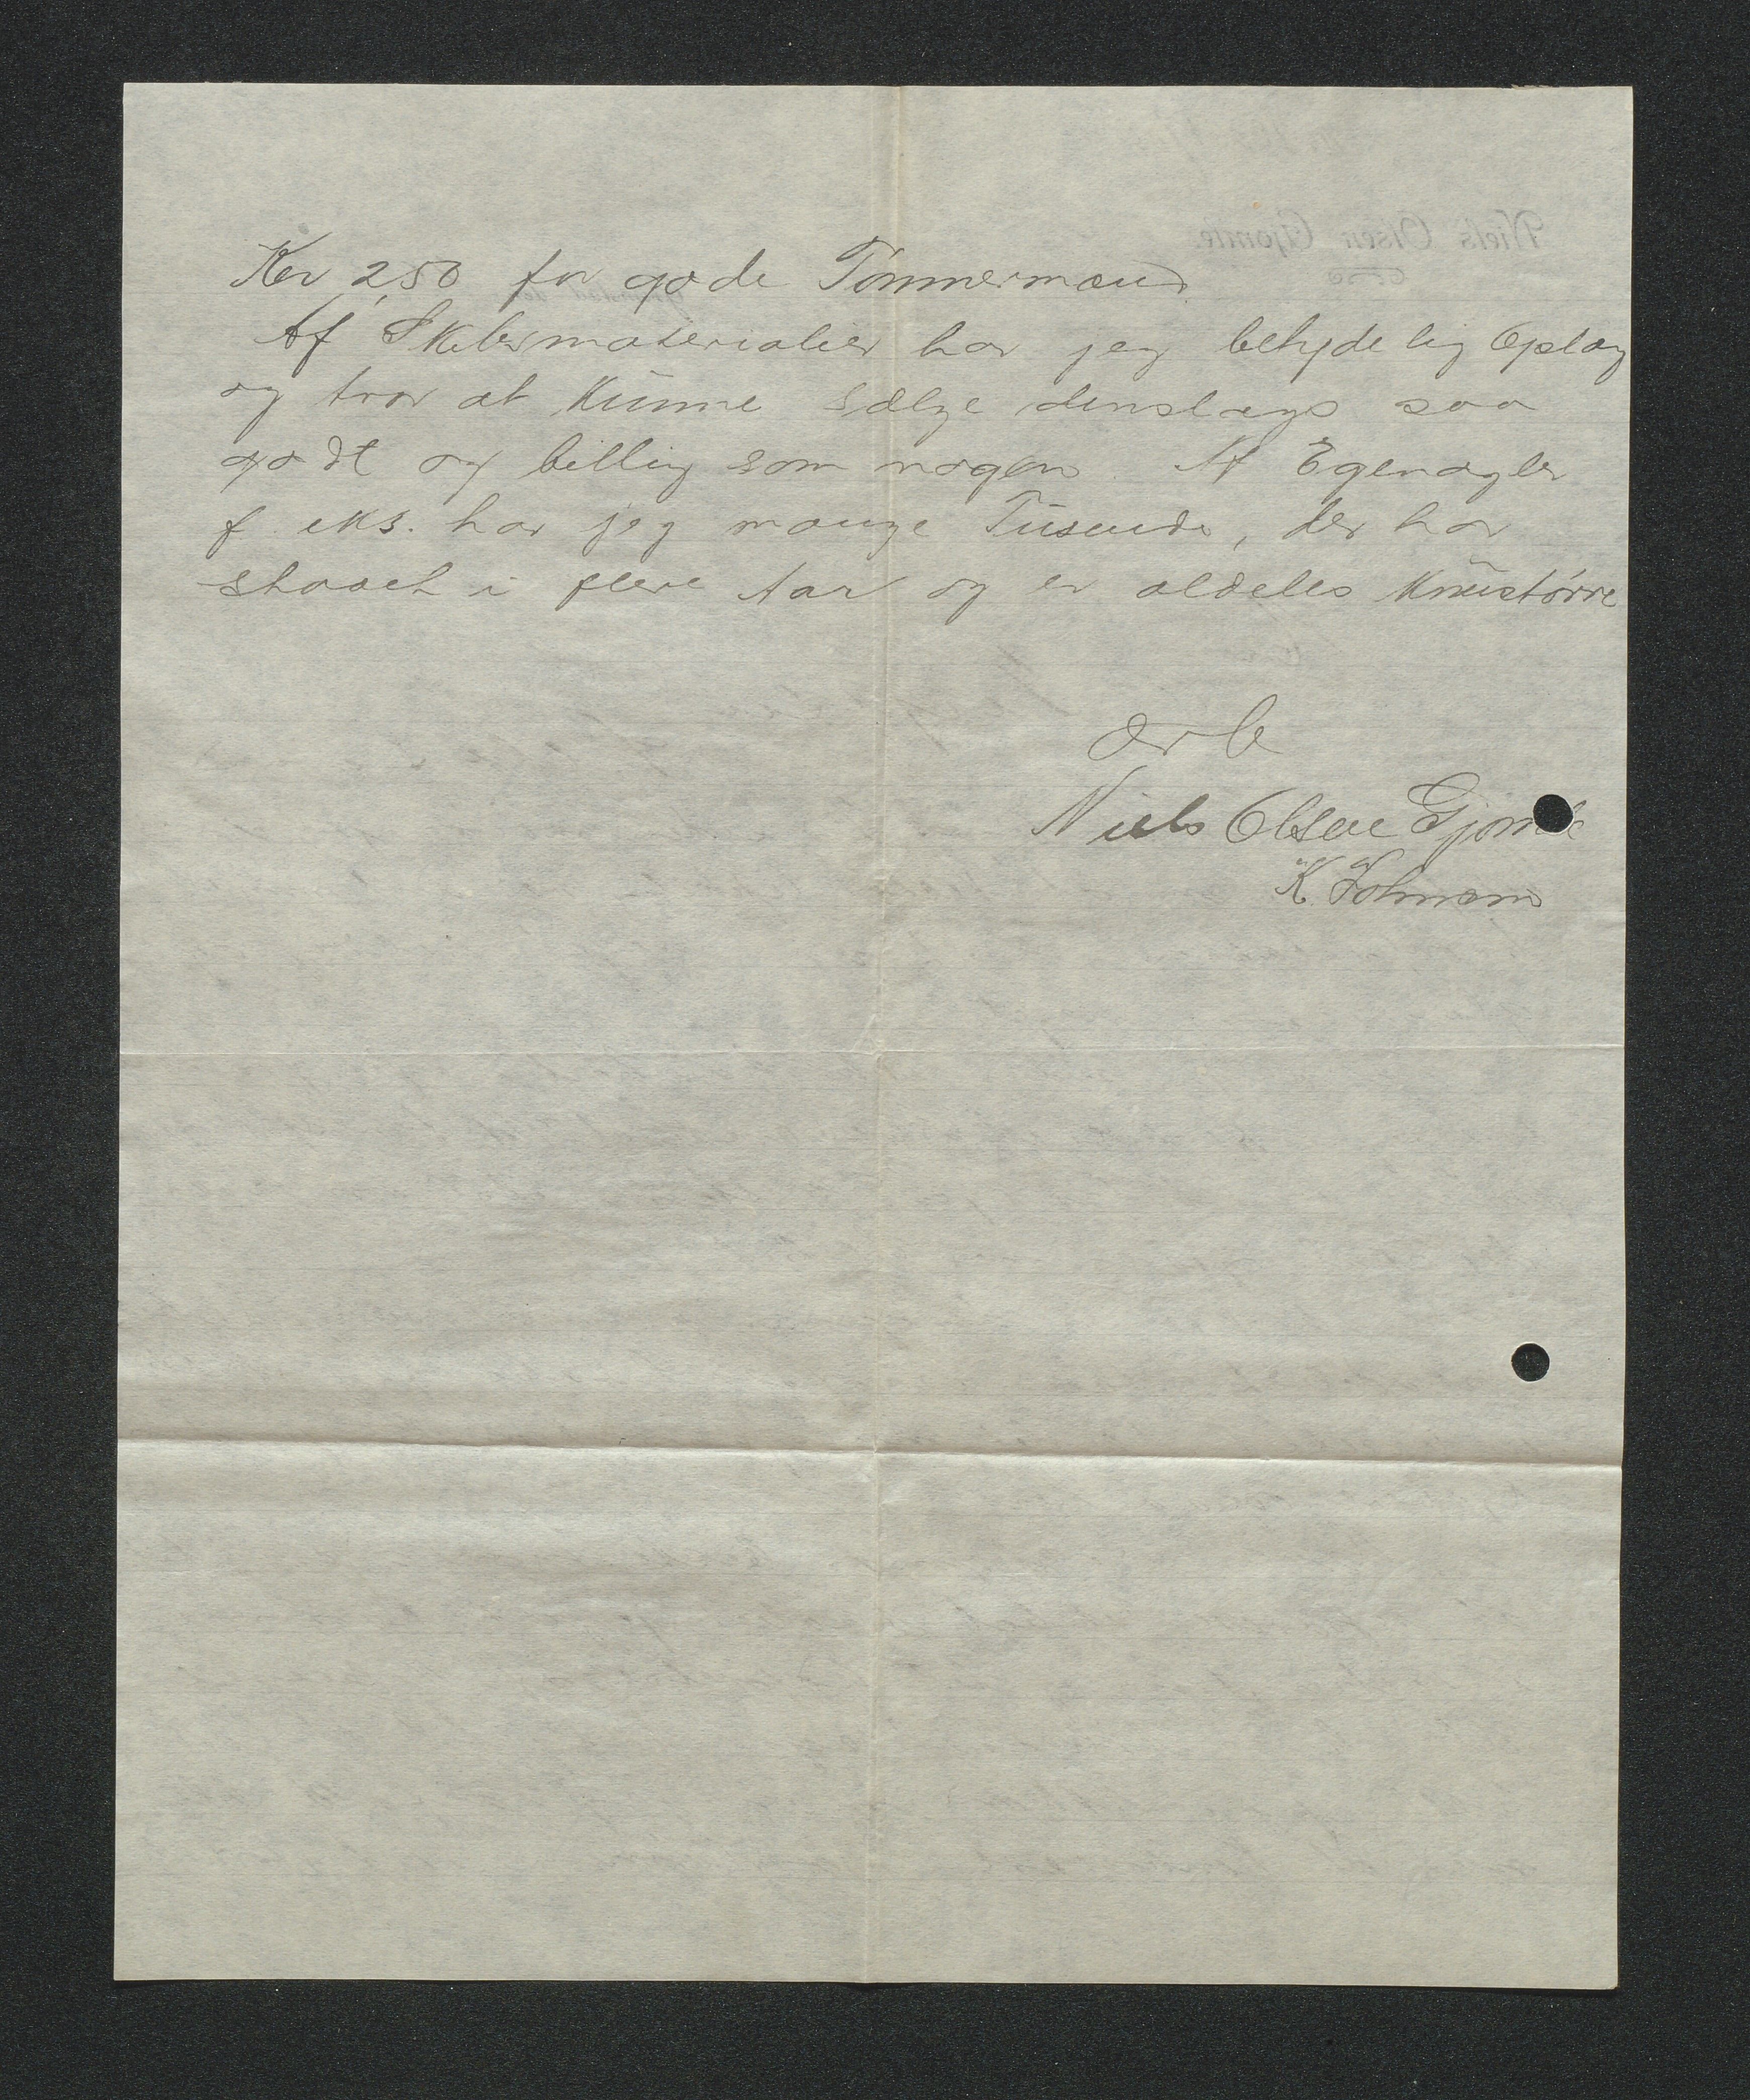 Kr 2,50 for gode Tømmermænd.
Af Skibsmaterialier har jeg betydelig Oplag
og tror at kunne sælge denslags saa
godt og billig som nogen. Af Egenagler
f. eks. har jeg mange Tusende, der har
staaet i flere Aar og er aldeles knustørre
ærb
Niels Olsen Gjømle
K. Johnsen